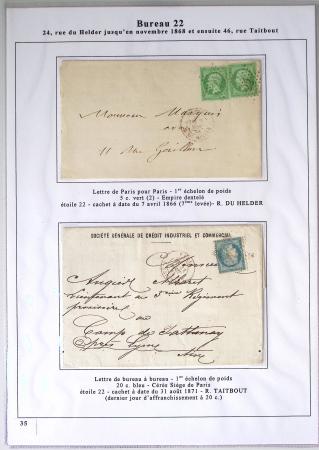 Bureau 22
24, rue du Helder jusqu'en novembre 1868 et ensuite 46, rue Taitbout
Monsieur Marquis
11 Rue Gaillon
Lettre de Paris pour Paris - 1er échelon de poids
5 c. vert (2) - Empire dentelé
étoile 22 - cachet à date du 7 avril 1866 (7ème levée)- R. DU HELDER
SOCIÉTÉ GÉNÉRALE DE CRÉDIT INDUSTRIEL ET COMMERCIAL
Monsieur
Albaret
Lieutenant au 3ème Régiment
provisoire
au
Camp de Sathonay
près Lyon
Ain
Lettre de bureau à bureau - 1er échelon de poids
20 c. bleu - Cérès Siège de Paris
étoile 22 - cachet à date du 31 août 1871 - R. TAITBOUT
(dernier jour d'affranchissement à 20 c.)
35